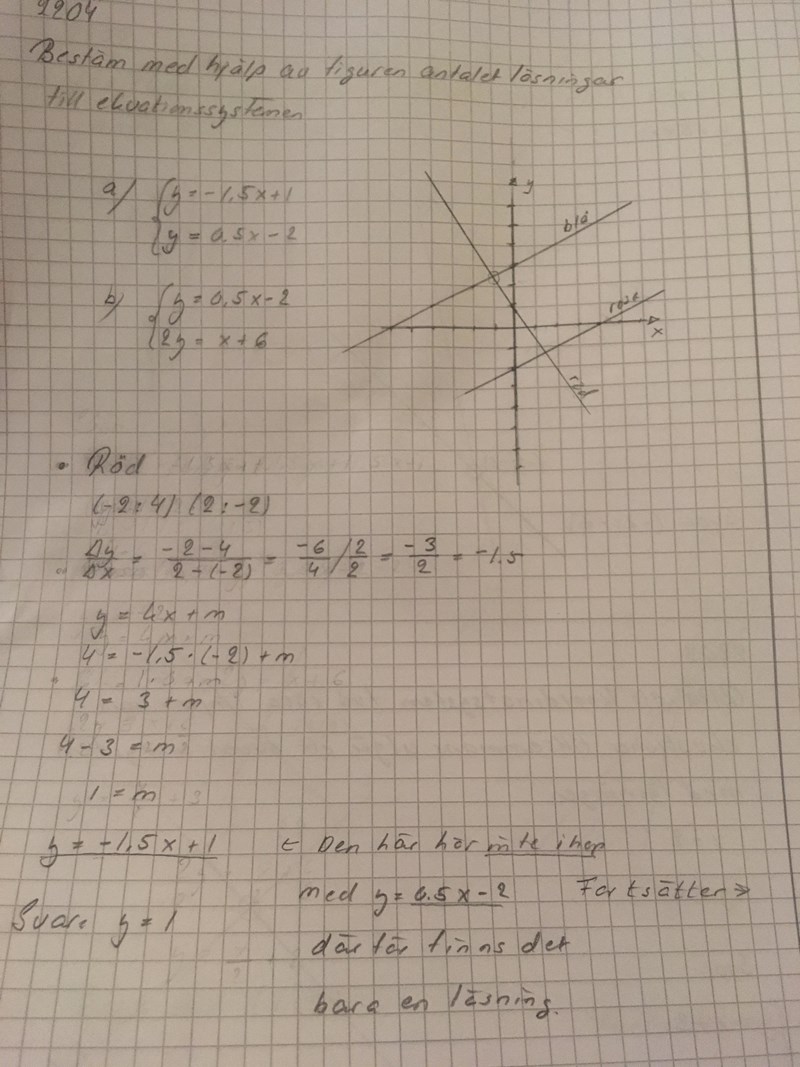 1204
Bestäm med hjälp av figuren antalet lösningar
till ekvationssystemen
a) { y = -1,5x+1
y = 0,5x-2
b) { y = 0,5x-2
2y = x+6
y
blå
rosa
x
röd
• Röd
(-2:4) (2:-2)
Δy/Δx = -2-4/2-(-2) = -6/4 / 2/2 = -3/2 = -1.5
y = kx + m
4 = -1,5·(-2) + m
4 = 3 + m
4-3 = m
1 = m
y = -1,5x+1 ← Den här hör inte ihop
med y = 0.5x-2 Fortsätter »
Svar: y = 1
därför finns det
bara en lösning.